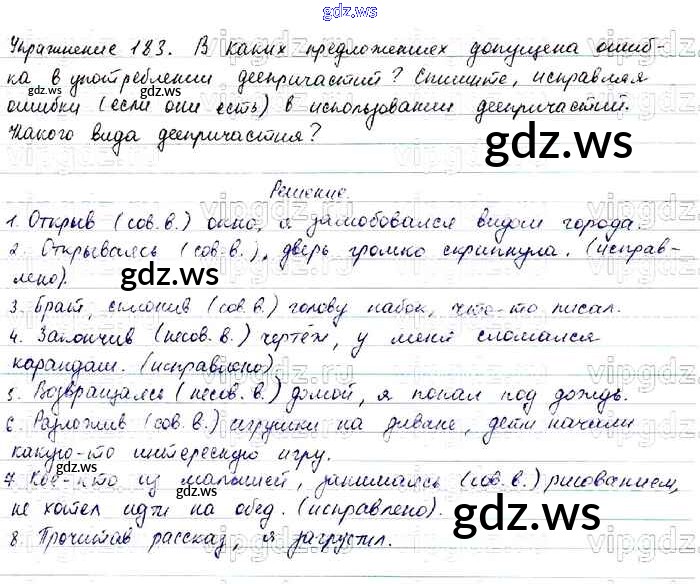 gdz.ws
Упражнение 183. В каких предложениях допущена ошиб-
ка в употреблении деепричастий? Спишите, исправляя
ошибки (если они есть) в использовании деепричастий.
Какого вида деепричастия?
gdz.ws
gdz.ws
Решение.
1. Открыв (сов.в.) окно, я залюбовался видом города.
2. Открываясь (сов.в.), дверь громко скрипнула. (исправ-
лено).
gdz.ws
gdz.ws
3. Брат, склонив (сов.в.) голову набок, что-то писал.
4. Закончив (несов.в.) чертёж, у меня сломался
карандаш. (исправлено).
5. Возвращаясь (несов.в.) домой, я попал под дождь.
6. Разложив (сов.в.) игрушки на диване, дети начали
какую-то интересную игру.
7. Кое-кто из малышей, занимаясь (сов.в.) рисованием,
не хотел идти на обед. (исправлено).
gdz.ws
gdz.ws
8. Прочитав рассказ, я загрустил.
gdz.ws